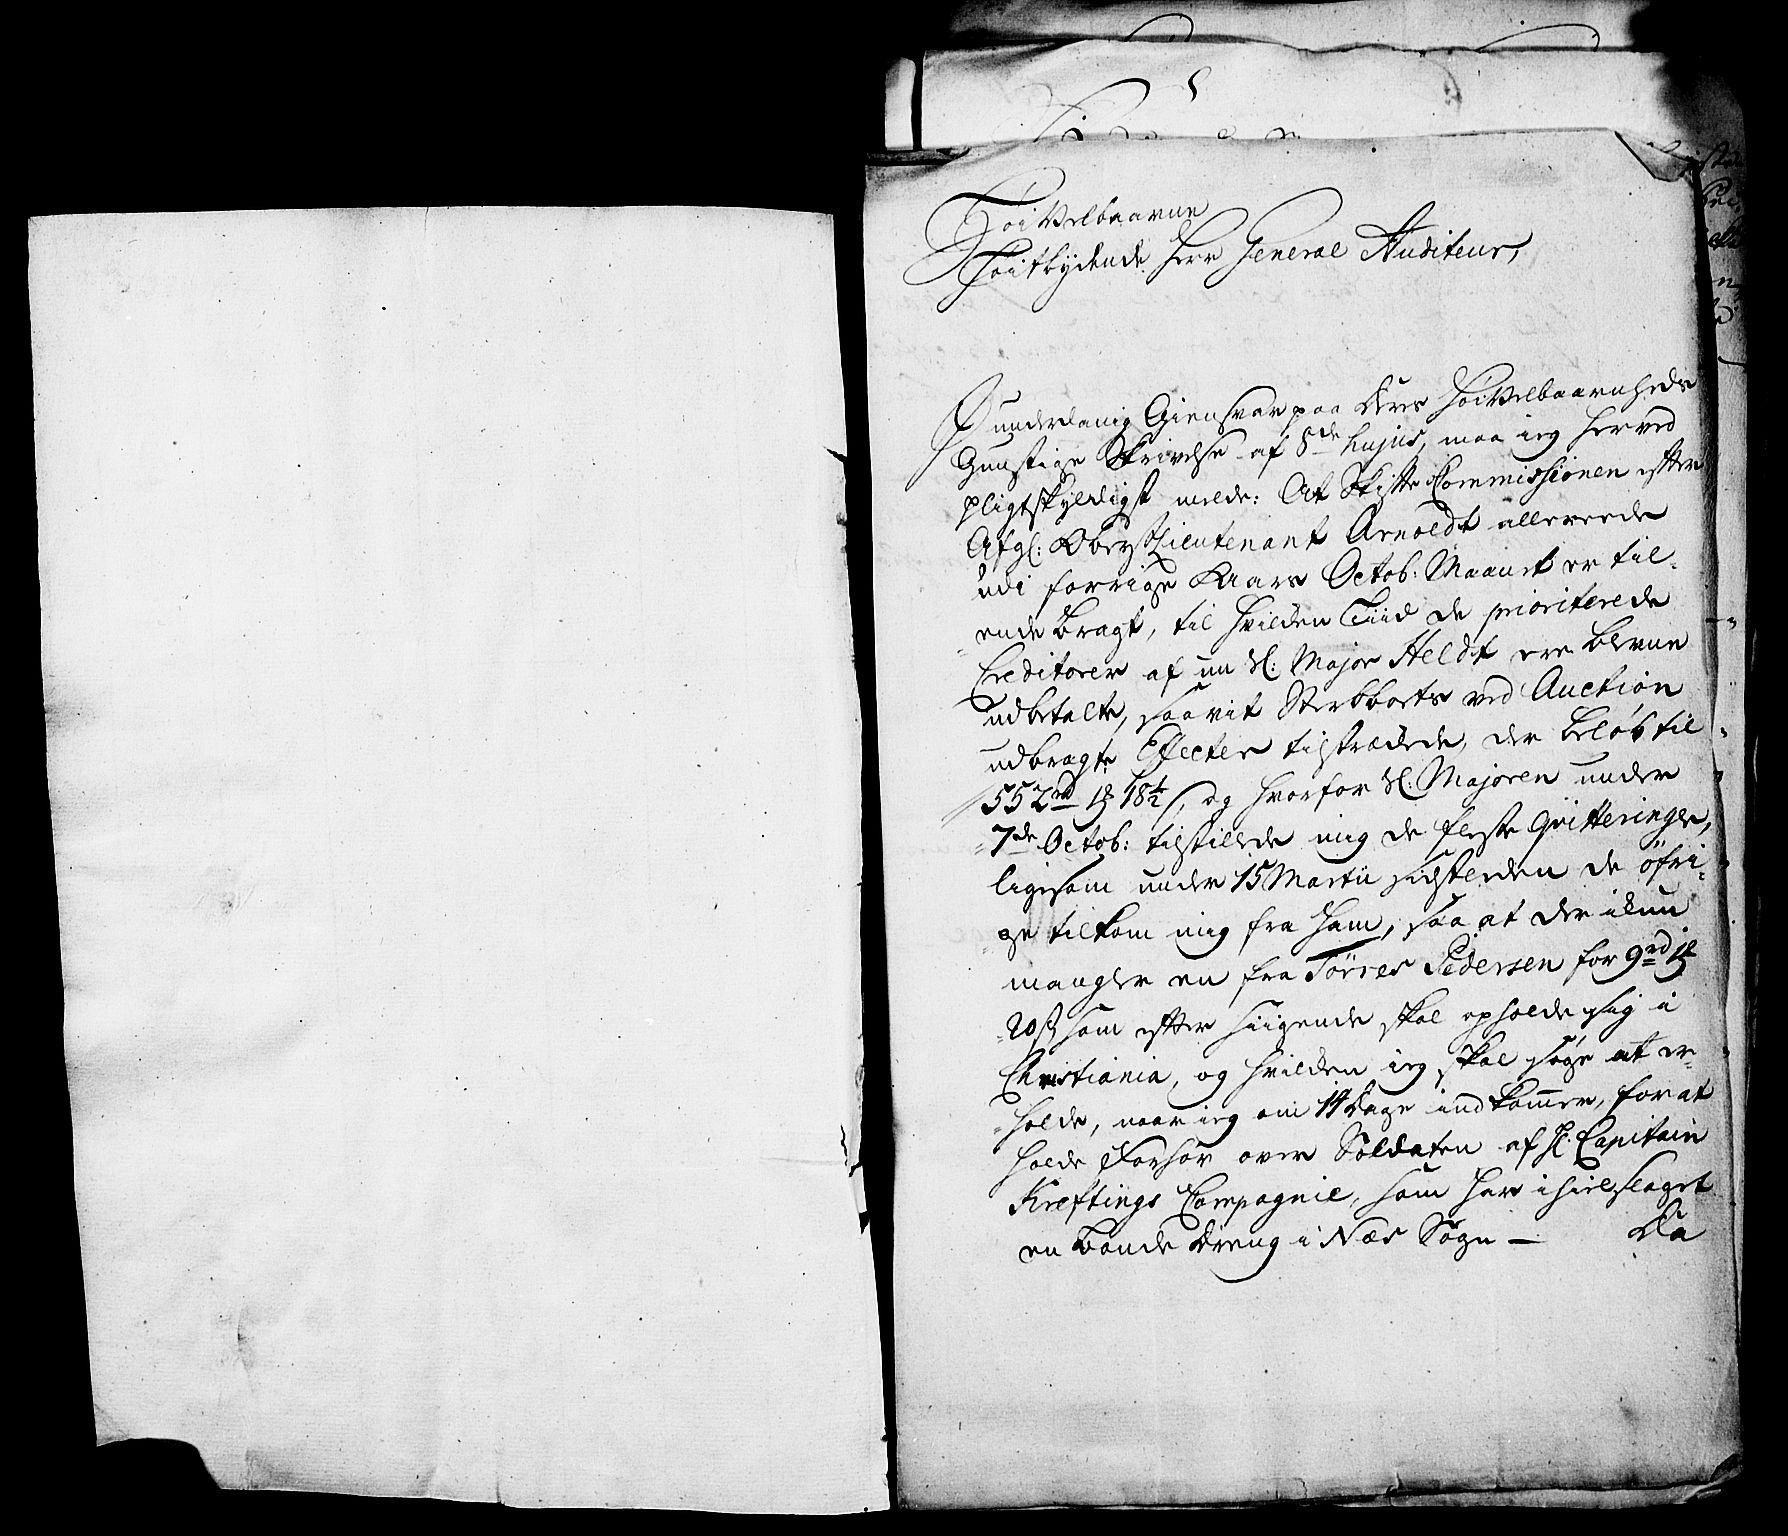 HøiVelbaarne
Høitbydende Herr General Auditeur,
I underdanig Giensvar paa Deres HøiVelbaarnheds
Gunstige Skrivelse af 8de hujus, maa ieg herved
pligtskyldigst melde: At Skifte Commissionen efter
Afgl: ObrystLieutenant Arnoldt allereede
udi forrige Aars Octob: Maanet er til-
ende bragt, til hvilken Tiid de prioriterede
Creditorer af nu Sl: Major Heldt ere blevne
udbetalte, saavit Sterbboets ved Auction
udbragte Effecter tilstrædede, der beløb til
552 rd 1 ort 18 1/2 s, og hvorfor Sl: Majoren under
7de Octob: tilstillede mig de fleste Qvitteringer,
ligesom under 15 Martii sidstleden de øfri-
ge tilkom mig fra Ham, saa at der ikun
mangler en fra Törres Pedersen for 9 rd 1 ort
20 s som efter sigende skal opholde sig i
Christiania, og hvilken ieg skal søge at er-
holde, naar ieg om 14 Dage indkommer, for at
holde Forhør over Soldaten af H: Capitain
Kreftings Compagnie, som har ihielslaget
en Bonde Dreng i Næs Sogn — Da